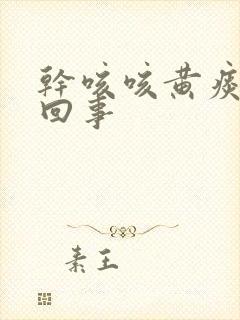 幹咳咳黄痰
回事
素王